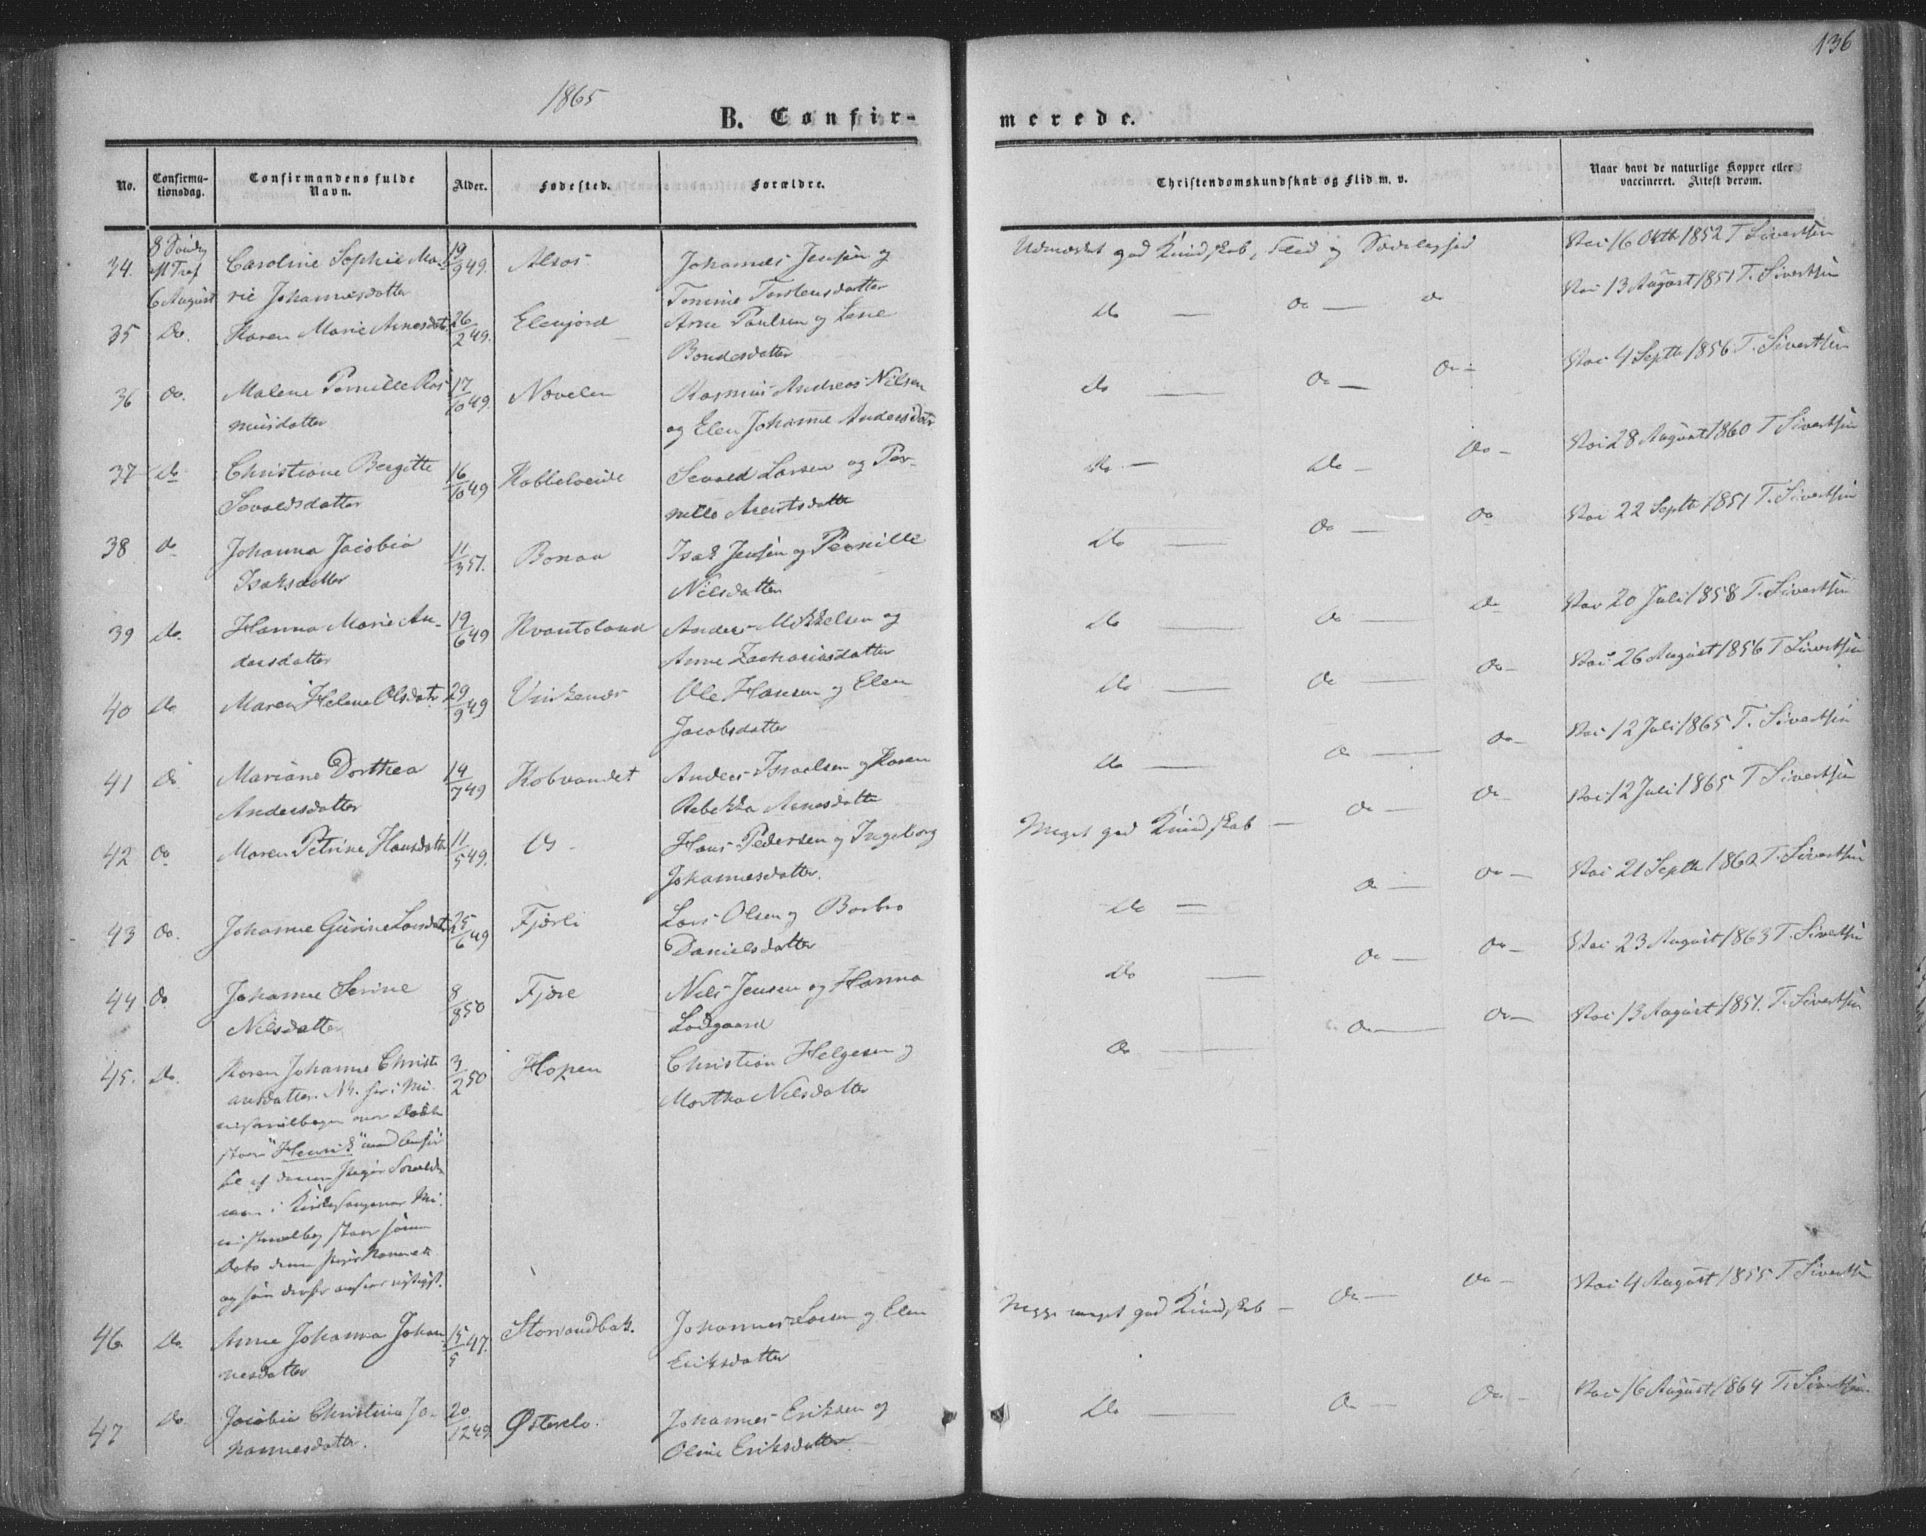 136
1865
B. Confir-
merede.
No.
Confirma-
tionsdag.
Confirmandens fulde
Navn.
Alder.
Fødested.
Forældre.
Christendomskundskab og Flid m. v.
Naar havt de naturlige Kopper eller
vaccineret. Attest derom.
34. 8 Søndag eft Tref 6 August
Caroline Sophie Ma-
rie Johannesdatter
19/9 49. Alsos
Johannes Jensen og
Tomine Torstensdatter
Udmærket god Kundskab, Flid og Sædelighed
Vac 16 Oktb 1852 T Sivertsen
35 do. Karen Marie Arnesdatr
26/2 49. Elenjord
Arne Paulsen og Lene
Bondesdatter
do — do — do
Vac 13 August 1851 T. Sivertsen
36 do. Malene Pernille Ras-
musdatter
17/10 49. Nevelen
Rasmus Andreas Nilsen
og Elen Johanne Andersdatr
do — do — do —
Vac 4 Septb 1856 T. Sivertsen
37 do Christiane Bergitte
Sevaldsdatter
16/10 49 Kobbelveide
Sevald Larsen og Per-
nille Arentsdatter
do — do — do —
Vac 28 August 1860 T Sivertsen
38 do Johanna Jacobia
Isaksdatter
11/3 51. Bonaa
Isak Jensen og Pernille
Nilsdatter
do — do — do
Vac 22 Septb 1851 T. Sivertsen
39 do. Hanna Marie An-
dersdatter
19/6 49 Kvantoland
Anders Mikkelsen og
Anne Zachariasdatter
do — do — do
Vac 20 Juli 1858 T. Sivertsen
40 do. Maren Helene Olsdatr
29/9 49
Ole Hansen og Elen
Jacobsdatter
do — do — do —
Vac 26 August 1856 T Sivertsen
41 do Mariane Dorthea
Andersdatter
14/7 49 Kobvandet
Anders Israelsen og Karen
Rebekka Arnesdatter
do — do — do —
Vac 12 Juli 1865 T. Sivertsen
42 do Maren Petrine Hansdattr
11/5 49. Os
Hans Pedersen og Ingeborg
Johannesdatter.
Meget god Kundskab — do — do —
Vac 12 Juli 1865 T Sivertsen
43 do. Johanne Gurine Larsdatr
25/6 49 Fjærli
Lars Olsen og Barbro
Danielsdatter
do — do — do —
Vac 21 Septb 1862 T. Sivertsen
44 do Johanne Serine
Nilsdatter
8/8 50 Fjære
Nils Jensen og Hanna
Lodgaard
do — do — do —
Vac 23 August 1863 T. Sivertsen
45. do. Karen Johanne Christi
ansdatter. NB. her i Mi-
nisterialbogen over Døbte
staaer "Henrik"
og som derfor ansees rigtigst.
3/2 50 Hopen
Christian Helgesen og
Martha Nilsdatter
do — do — do —
Vac 13 August 1851. T. Sivertsen
46. do. Anne Johanna Johan-
nesdatter
15/5 47. Storvandbak.
Johannes Larsen og Elen
Eriksdatter
Megge meget god Kundskab — do — do —
Vac 4 August 1855 T Sivertsen
47 do Jacobia Christina Jo-
hannesdatter.
20/12 49 Østerelo.
Johannes Eriksen og
Oline Eriksdatter.
do — do — do —
Vac 16 August 1864 T. Sivertsen